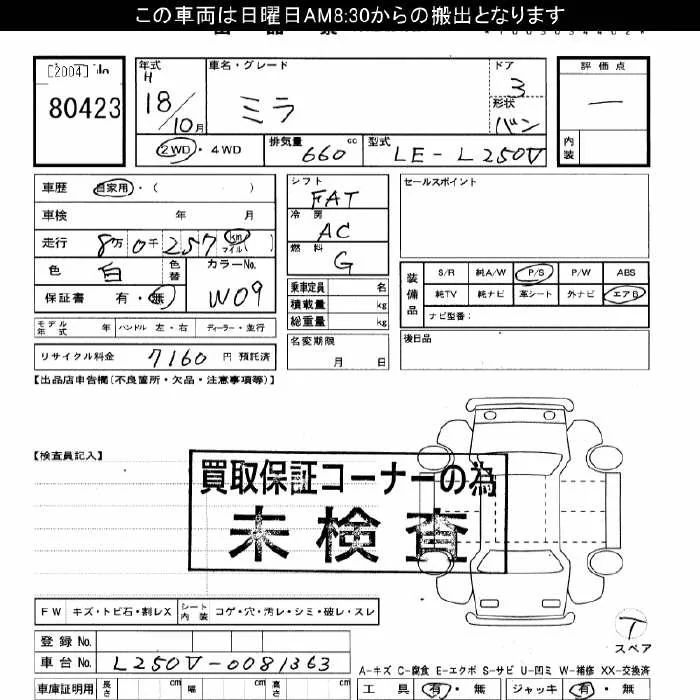 この車両は日曜日AM8:30からの搬出となります
[2004]
80423
年式 H 18/10月
車名・グレード
ミラ
ドア 3
形状 バン
評価点
―
内装
2WD・4WD
排気量 660 cc
型式 LE-L250V
車歴 自家用・( )
車検 年 月
走行 8万0千257 km マイル ( )
色 白 色替
カラーNo. W09
保証書 有・無
モデル年式 年 ハンドル 左・右 ディーラー・並行
リサイクル料金 7160 円 預託済
シフト FAT
冷房 AC
燃料 G
乗車定員 名
積載量 kg
総重量 kg
名変期限 月 日
セールスポイント
装備品
S/R 純A/W P/S P/W ABS
純TV 純ナビ 革シート 外ナビ エアB
ナビ型番:
後日品
【出品店申告欄(不良箇所・欠品・注意事項等)】
【検査員記入】
買取保証コーナーの為
未検査
FW キズ・トビ石・割レX シート内装 コゲ・穴・汚レ・シミ・破レ・スレ
登録No.
車台No. L250V-0081363
車庫証明用 長さ cm 幅 cm 高さ cm
T
スペア
A-キズ C-腐食 E-エクボ S-サビ U-凹ミ W-補修 XX-交換済
工具 有・無 ジャッキ 有・無